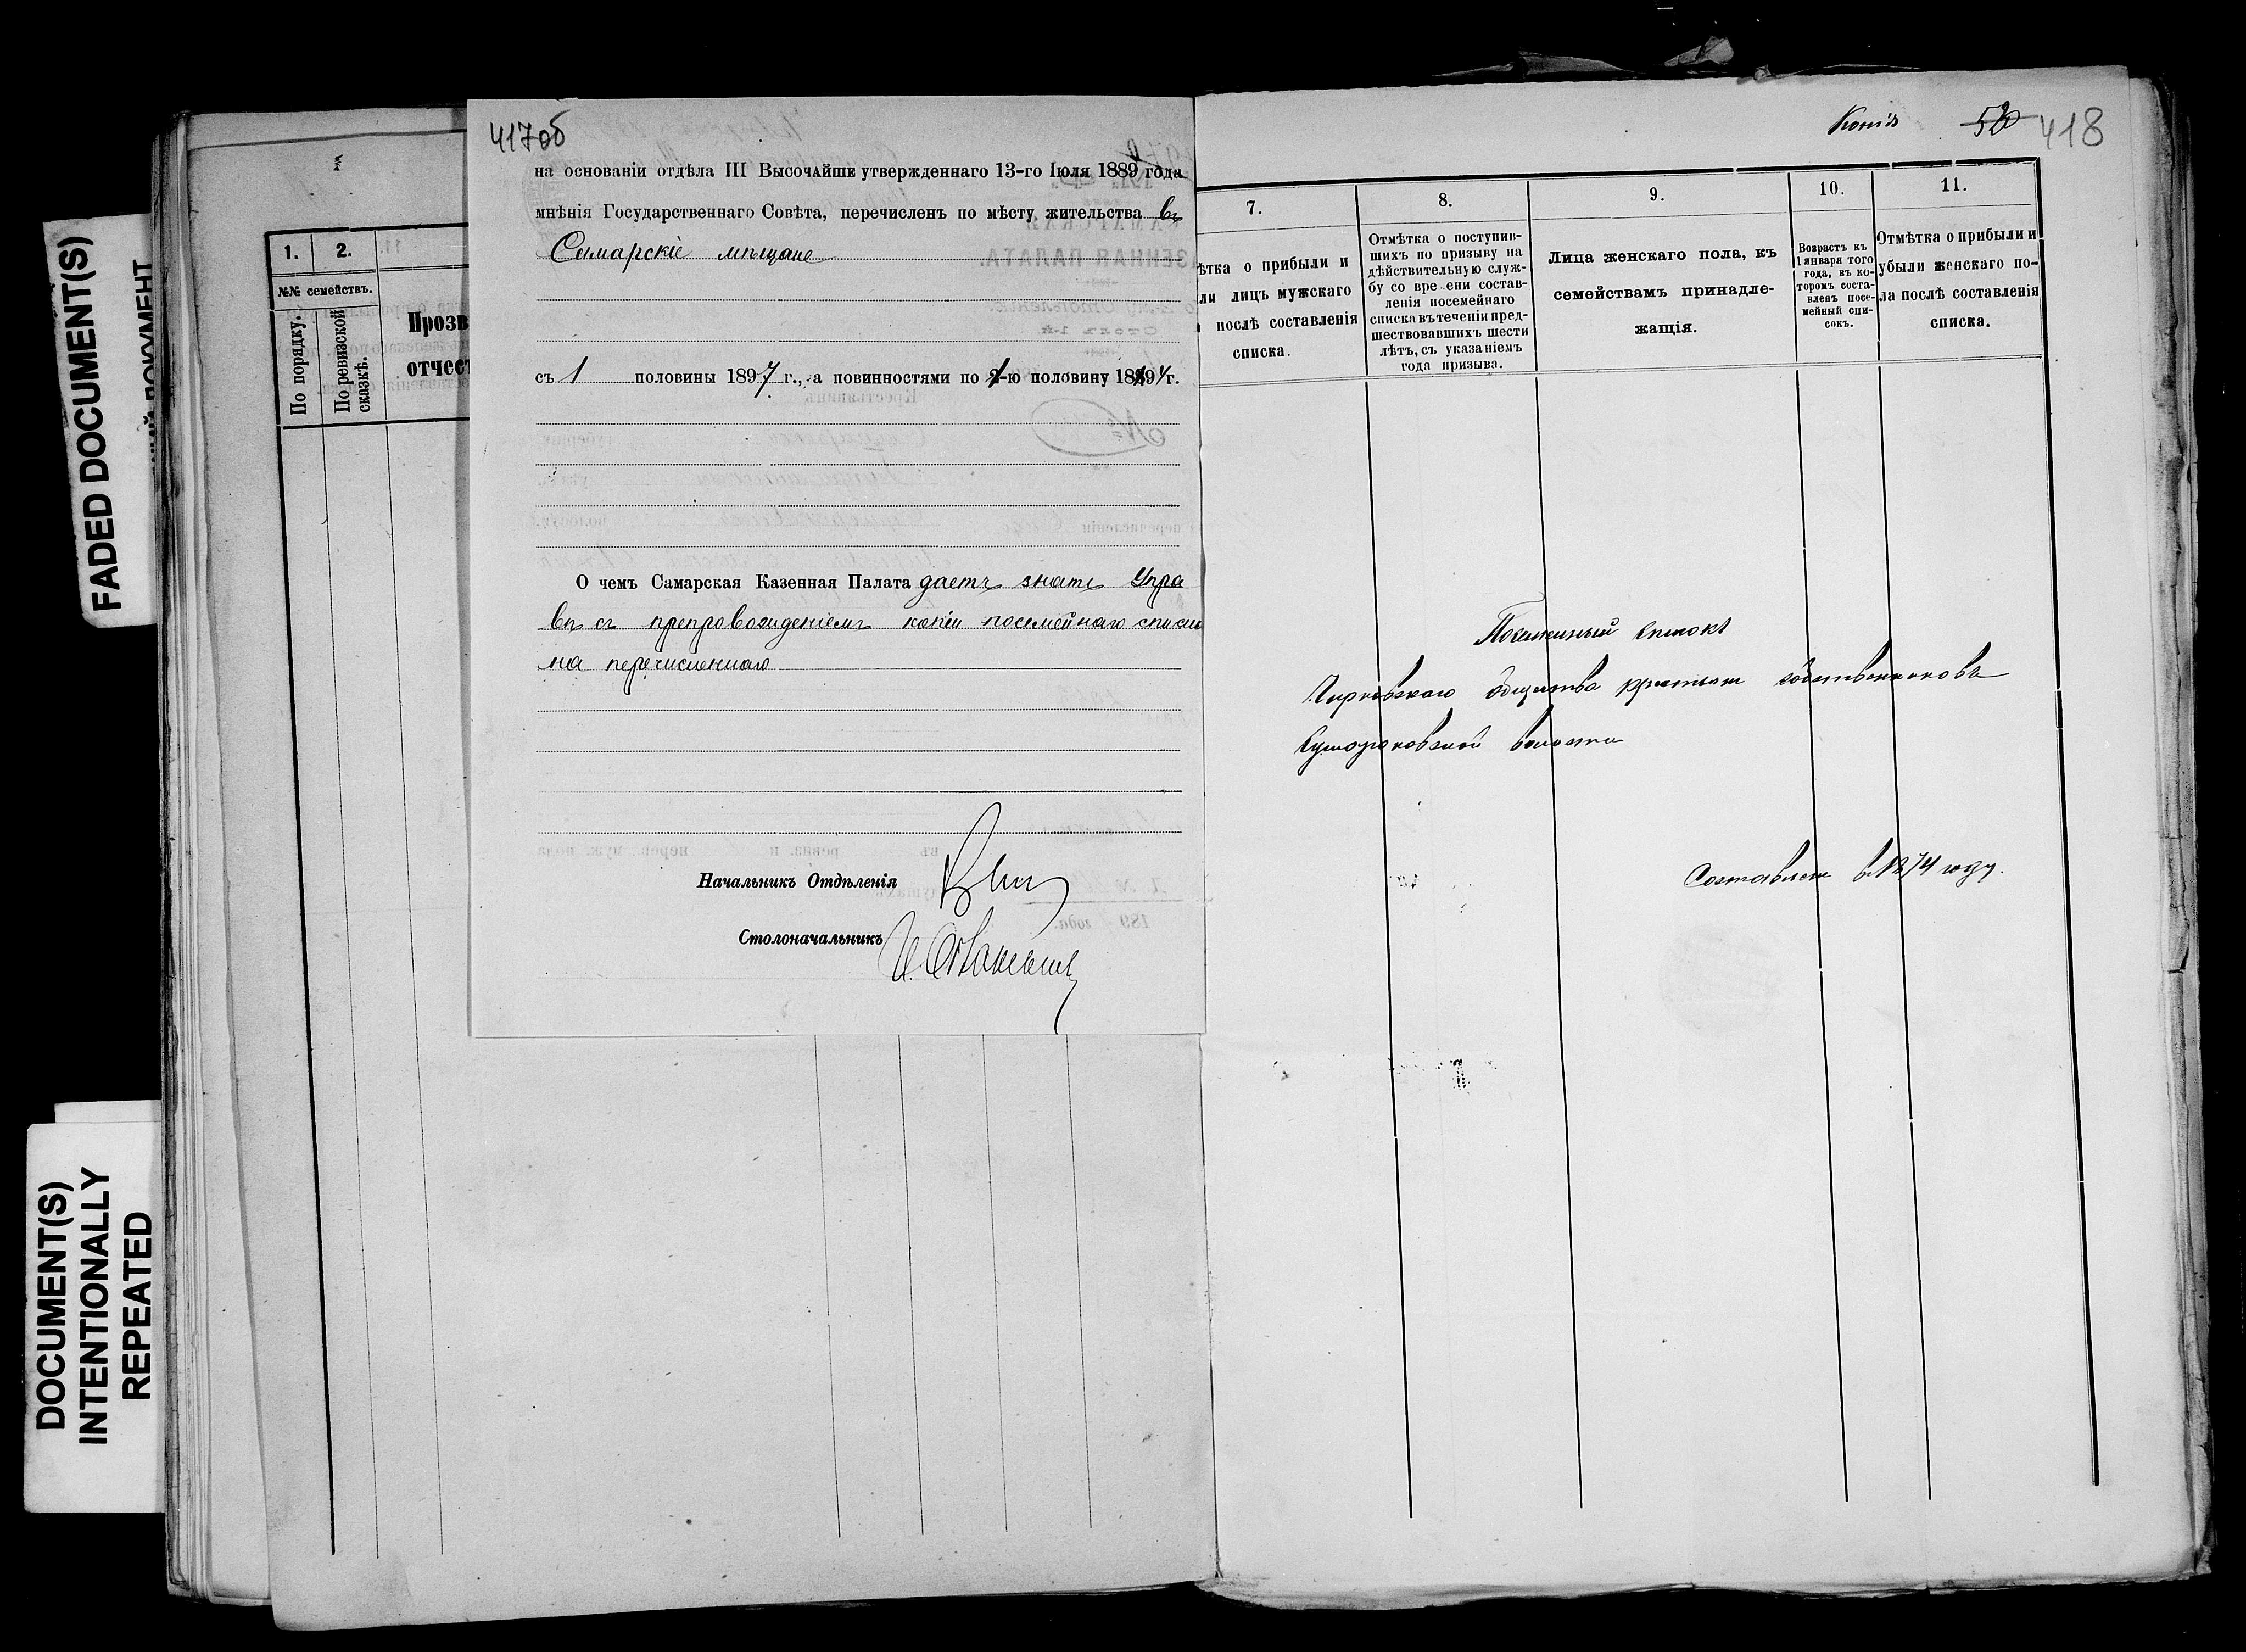 FADED DOCUMENT(S)
DOCUMENT(S)
INTENTIONALLY
REPEATED
1.
2.
№№ семействъ.
По порядку.
По ревизской
сказкѣ.
Прозв
отчест
417об
на основаніи отдѣла III Высочайше утвержденнаго 13-го Іюля 1889 года
мнѣнія Государственнаго Совѣта, перечисленъ по мѣсту жительства въ
Самарскіе мѣщане
съ 1 половины 1897 г., а повинностями по 1-ю половину 1897 г.
О чемъ Самарская Казенная Палата даетъ знать Упра
вѣ съ препровожденіемъ копіи посемейнаго списка
на перечисленнаго
Начальникъ Отдѣленія
Столоначальникъ
Копія
418
7.
ѣтка о прибыли и
ли лицъ мужскаго
послѣ составленія
списка.
8.
Отмѣтка о поступив-
шихъ по призыву на
дѣйствительную служ-
бу со вре ени состав-
ленія посемейнаго
списка въ теченіи пред-
шествовавшихъ шести
лѣтъ, съ указаніемъ
года призыва.
9.
Лица женскаго пола, къ
семействамъ принадле-
жащія.
10.
Возрастъ къ
1 января того
года, въ ко-
торомъ соста-
вленъ посе-
мейный спи-
сокъ.
11.
Отмѣтка о прибыли и
убыли женскаго по-
ла послѣ составленія
списка.
Посемейный списокъ
общества крестьянъ собственниковъ
волости
Составленъ въ 1874 году.